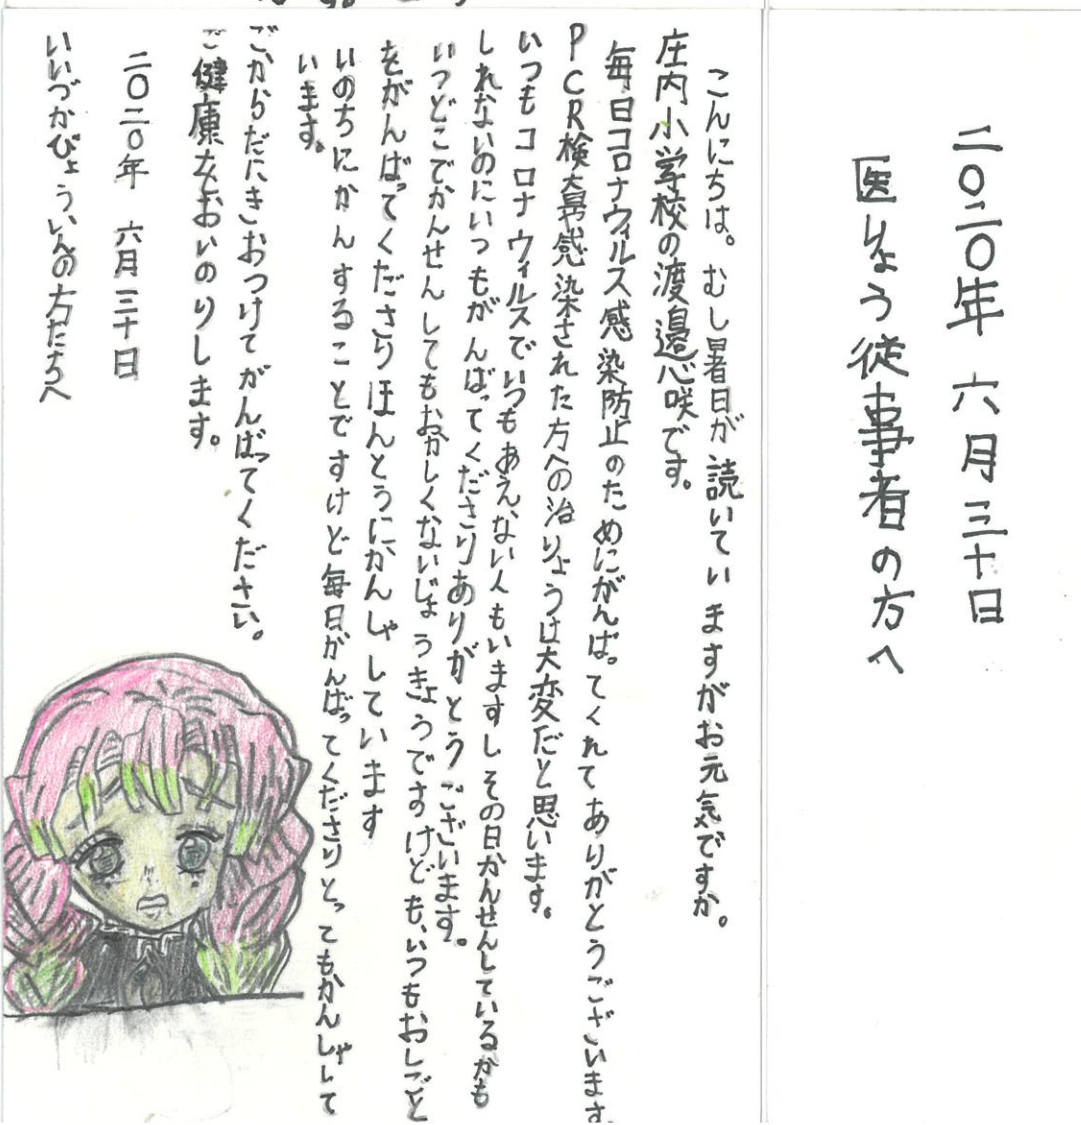 二〇二〇年 六月三十日
医りょう従事者の方へ
こんにちは。むし暑日が続いていますがお元気ですか。
庄内小学校の渡邉心咲です。
毎日コロナウィルス感染防止のためにがんばってくれてありがとうございます
PCR検査感染された方への治りょうは大変だと思います。
いつもコロナウィルスでいつもあえない人もいますしその日かんせんしているかも
しれないのにいつもがんばってくださりありがとうございます。
いつどこでかんせんしてもおかしくないじょうきょうですけども、いつもおしごと
をがんばってくださりほんとうにかんしゃしています
いのちにかんすることですけど毎日がんばってくださりとってもかんしゃして
います。
ごからだにきおつけてがんばってください。
ご健康をおいのりします。
二〇二〇年 六月三十日
いいづかびょういんの方たちへ